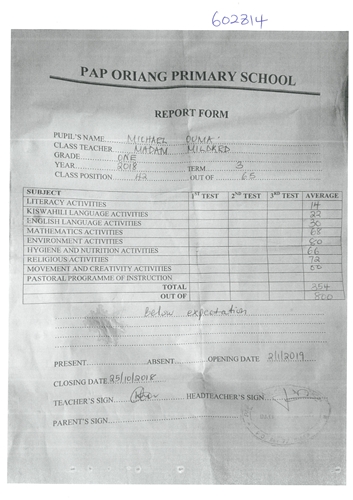 602814
PAP ORIANG PRIMARY SCHOOL
REPORT FORM
PUPIL'S NAME MICHAEL OUMA
CLASS TEACHER MADAM MILDRED
GRADE ONE
YEAR 2018 TERM 3
CLASS POSITION 42 OUT OF 65
SUBJECT 1ST TEST 2ND TEST 3RD TEST AVERAGE
LITERACY ACTIVITIES 14
KISWAHILI LANGUAGE ACTIVITIES 22
ENGLISH LANGUAGE ACTIVITIES 30
MATHEMATICS ACTIVITIES 68
ENVIRONMENT ACTIVITIES 80
HYGIENE AND NUTRITION ACTIVITIES 66
RELIGIOUS ACTIVITIES 72
MOVEMENT AND CREATIVITY ACTIVITIES 00
PASTORAL PROGRAMME OF INSTRUCTION
TOTAL 354
OUT OF 800
Below expectation
PRESENT ABSENT OPENING DATE 2/1/2019
CLOSING DATE 25/10/2018
TEACHER'S SIGN HEADTEACHER'S SIGN
PARENT'S SIGN